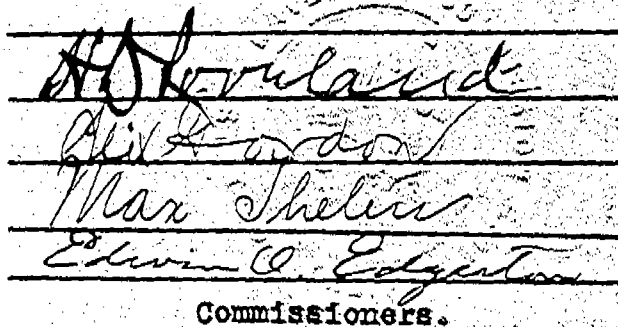 H D Loveland
Alex Gordon
Max Thelen
Edwin O. Edgerton
Commissioners.